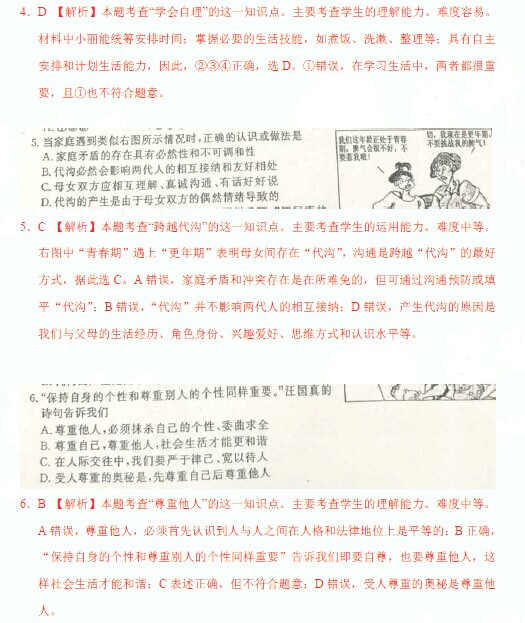 4. D 【解析】本题考查“学会自理”的这一知识点。主要考查学生的理解能力。难度容易。
材料中小丽能统筹安排时间；掌握必要的生活技能，如煮饭、洗漱、整理等；具有自主
安排和计划生活能力，因此，②③④正确，选 D。①错误，在学习生活中，两者都很重
要，且①也不符合题意。
5. 当家庭遇到类似右图所示情况时，正确的认识或做法是
A. 家庭矛盾的存在具有必然性和不可调和性
B. 代沟必然会影响两代人的相互接纳和友好相处
C. 母女双方应相互理解、真诚沟通、有话好好说
D. 代沟的产生是由于母女双方的偶然情绪导致的
我们这年龄正处于青春
期，脾气会很不好，不
要惹我哦！
切，我现在是更年期，
不要挑战我的脾气！
5. C 【解析】本题考查“跨越代沟”的这一知识点。主要考查学生的运用能力。难度中等。
右图中“青春期”遇上“更年期”表明母女间存在“代沟”，沟通是跨越“代沟”的最好
方式，据此选 C。A 错误，家庭矛盾和冲突存在是在所难免的，但可通过沟通预防或填
平“代沟”；B 错误，“代沟”并不影响两代人的相互接纳；D 错误，产生代沟的原因是
我们与父母的生活经历、角色身份、兴趣爱好、思维方式和认识水平等。
6. “保持自身的个性和尊重别人的个性同样重要。”汪国真的
诗句告诉我们
A. 尊重他人，必须抹杀自己的个性、委曲求全
B. 尊重自己，尊重他人，社会生活才能更和谐
C. 在人际交往中，我们要严于律己、宽以待人
D. 受人尊重的奥秘是，先尊重自己后尊重他人
6. B 【解析】本题考查“尊重他人”的这一知识点。主要考查学生的理解能力。难度中等。
A 错误，尊重他人，必须首先认识到人与人之间在人格和法律地位上是平等的；B 正确，
“保持自身的个性和尊重别人的个性同样重要”告诉我们即要自尊，也要尊重他人，这
样社会生活才能和谐；C 表述正确，但不符合题意；D 错误，受人尊重的奥秘是尊重他
人。